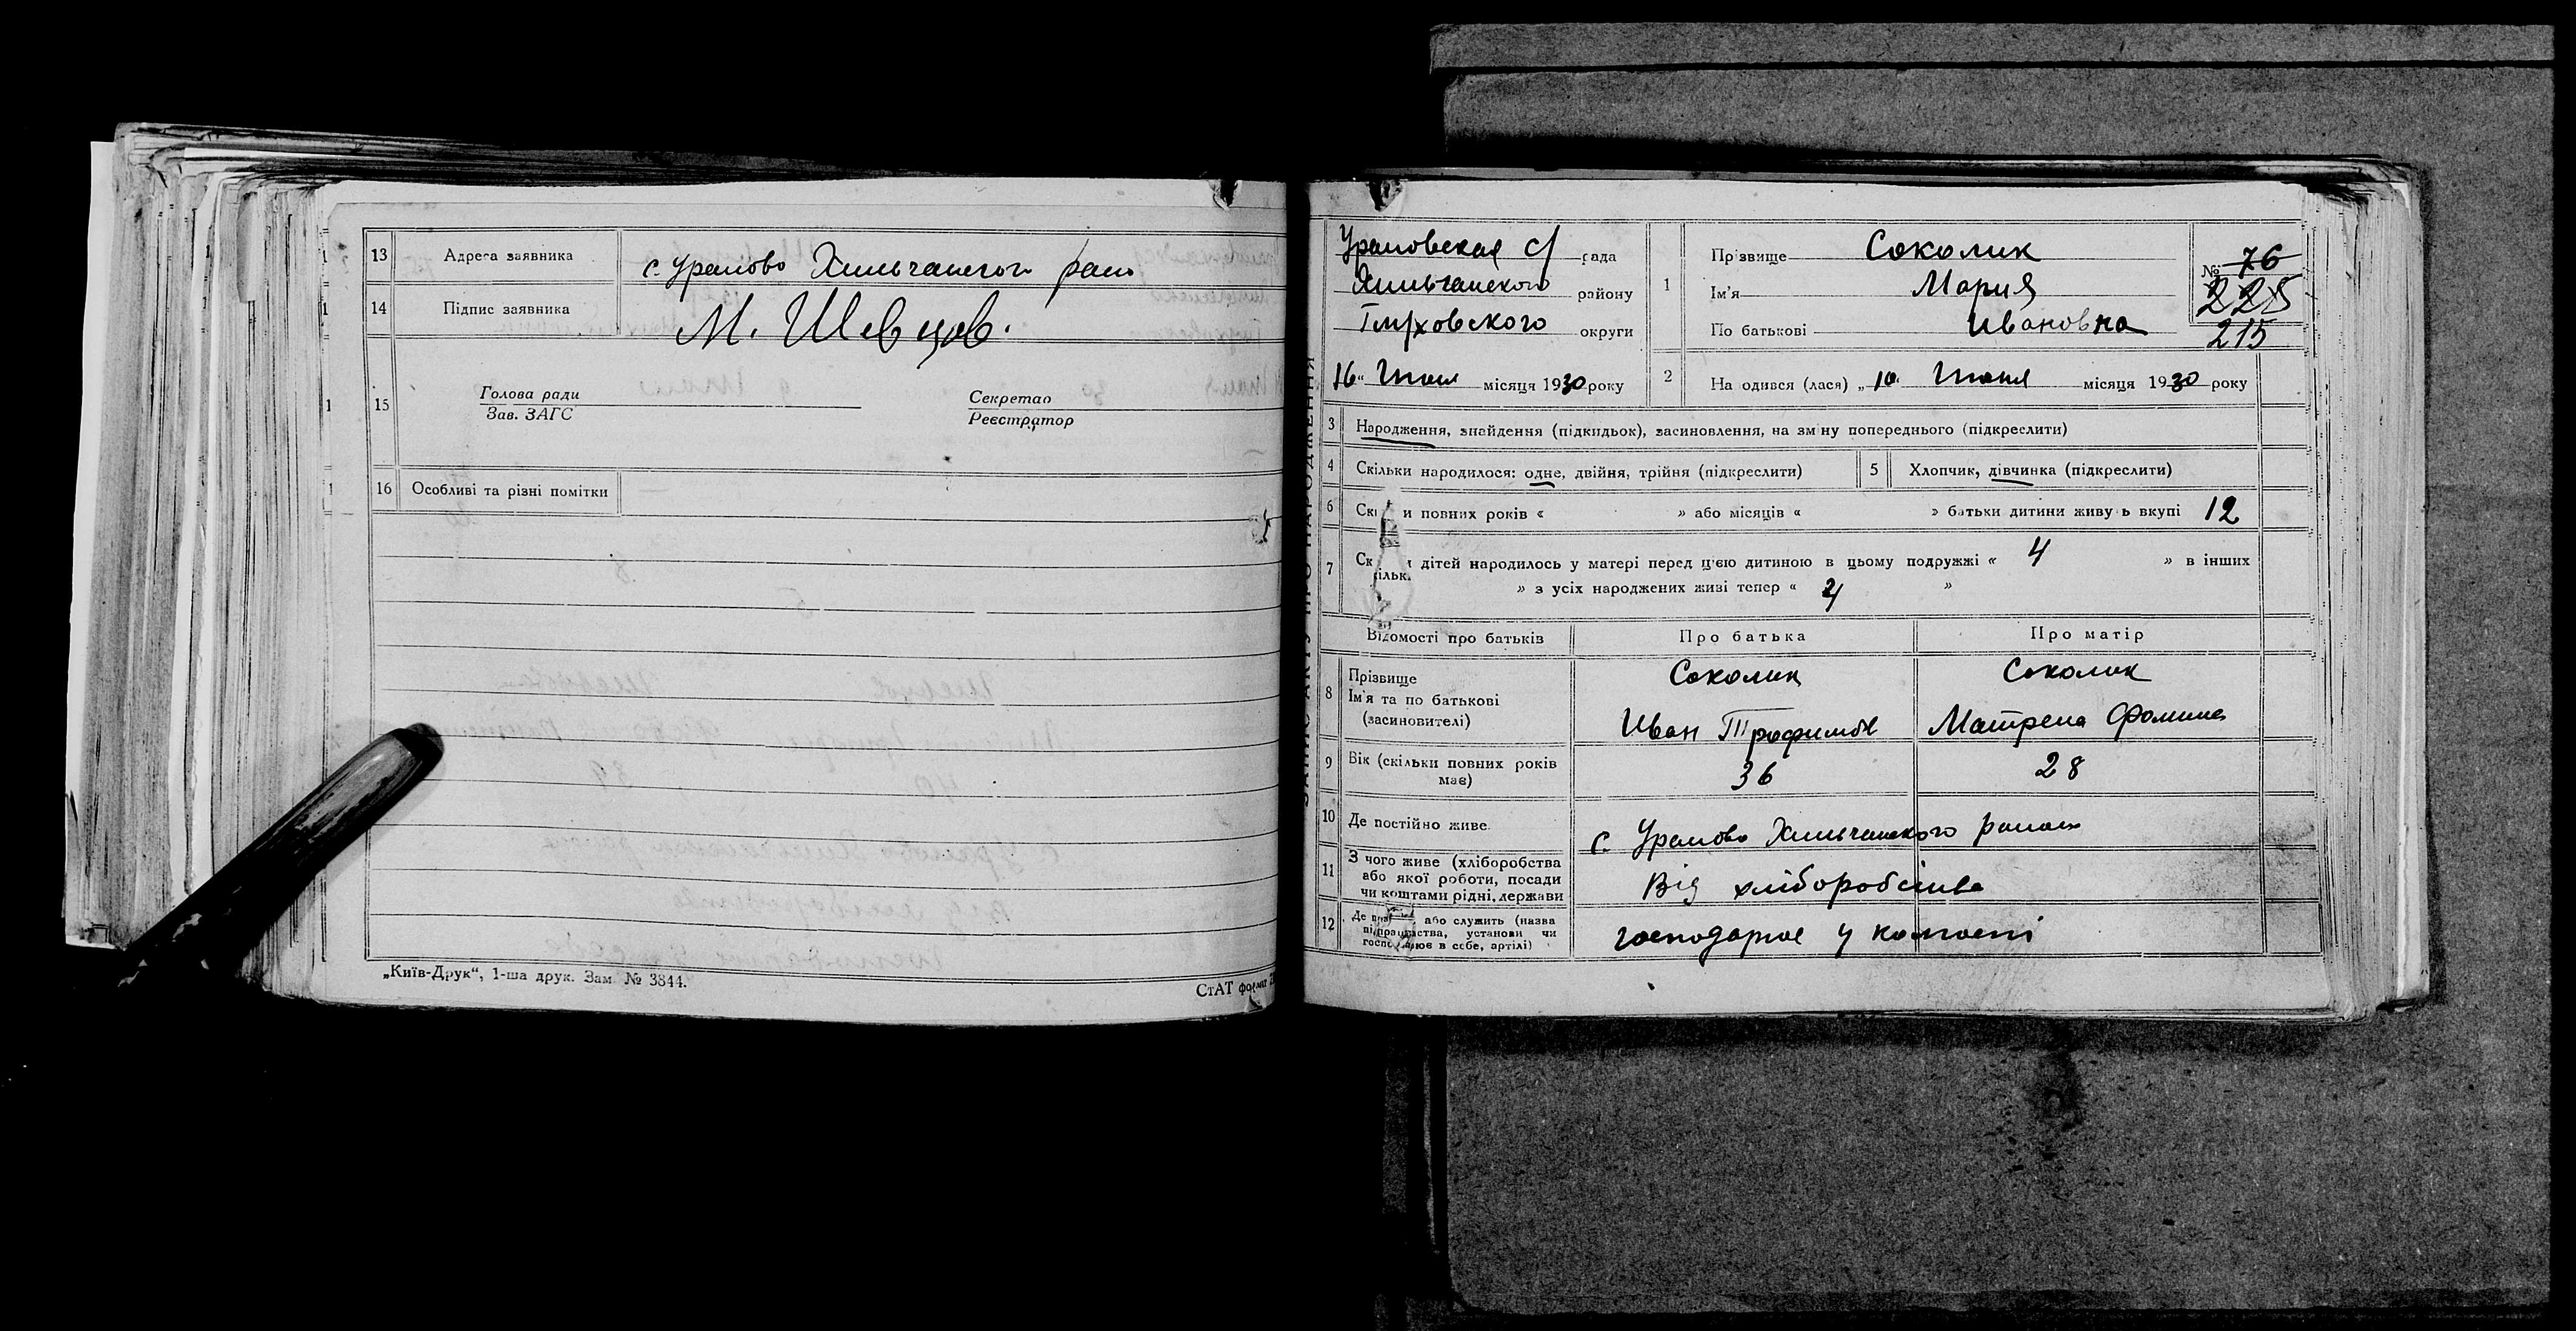 13 Адреса заявника с. Уралово Хильчанского рано
14 Підпис заявника М. Шевцов.
15 Голова ради Секретар
Зав. ЗАГС Реєстратор
16 Особливі та різні помітки
„Київ-Друк“, 1-ша друк. Зам № 3844.
СтАТ форма
ЗАПИС АКТУ ПРО НАРОДЖЕННЯ
Ураловская с/ рада
Хильчанского району
Глуховского округи
16 місяця 1930 року
1 Прізвище Соколик
Ім'я Мария
По батькові Ивановна
№ 76
225
215
2 На одився (лася) „10“ місяця 1930 року
3 Народження, знайдення (підкидьок), засиновлення, на зміну попереднього (підкреслити)
4 Скільки народилося: одне, двійня, трійня (підкреслити) 5 Хлопчик, дівчинка (підкреслити)
6 Ск и повних років « » або місяців « » батьки дитини живу ь вкупі 12
7 Ск дітей народилось у матері перед ц'єю дитиною в цьому подружжі « 4 » в інших
ільк » з усіх народжених живі тепер « »
Відомості про батьків Про батька Про матір
8 Прізвище Соколик Соколик
Ім'я та по батькові
(засиновителі) Иван Трофимов Матрена Фомина
9 Вік (скільки повних років має) 36 28
10 Де постійно живе с. Уралово Хильчанского
11 З чого живе (хліборобства
або якої роботи, посади
чи коштами рідні, держави Від хліборобства
12 Де або служить (назва
підприємства, установи чи
господарює в себе, артілі) господарює у